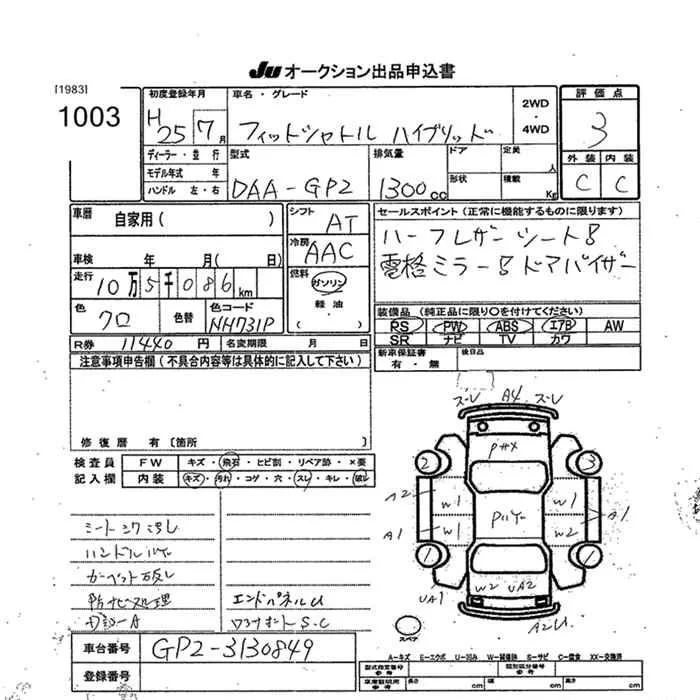 JU オークション出品申込書
[1983]
1003
初度登録年月
H 25 7月
車名・グレード
フィットシャトル ハイブリッド
2WD ・ 4WD
評価点
3
外装 内装
C C
ディーラー・並行
モデル年式 年
ハンドル 左・右
型式
DAA-GP2
排気量
1300cc
ドア
定員 人
形状
積載 Kg
車歴 自家用( )
車検 年 月( 日)
走行 10万5千086km
色 クロ 色替 色コード NH731P
シフト AT
冷房 AAC
燃料 ガソリン
軽油
( )
セールスポイント(正常に機能するものに限ります)
ハーフレザーシート
電格ミラー ドアバイザー
装備品(純正品に限り○を付けてください)
RS PW ABS エアB AW
SR ナビ TV カワ
R券 11440円 名変期限 月 日
新車保証書 有・無 後日品
注意事項申告欄(不具合内容等は具体的に記入して下さい)
修復歴 有〔箇所 〕
検査員記入欄
FW キズ・飛石・ヒビ割・リペア跡・×要
内装 キズ・汚れ・コゲ・穴・スレ・キレ・破レ
ズレ A4 ズレ
2 3
A2 W1 W1
A1 W1 W2 A1
1 1
UA1 W2 UA2
A2U
スペア
防サビ処理
エンドパネルU
S.C
車台番号 GP2-3130849
登録番号
A=キズ E=エクボ U=凹み W=補修跡 S=サビ C=腐食 XX=交換済
型式指定番号 類別区分番号
長さ cm 幅 cm 高さ cm